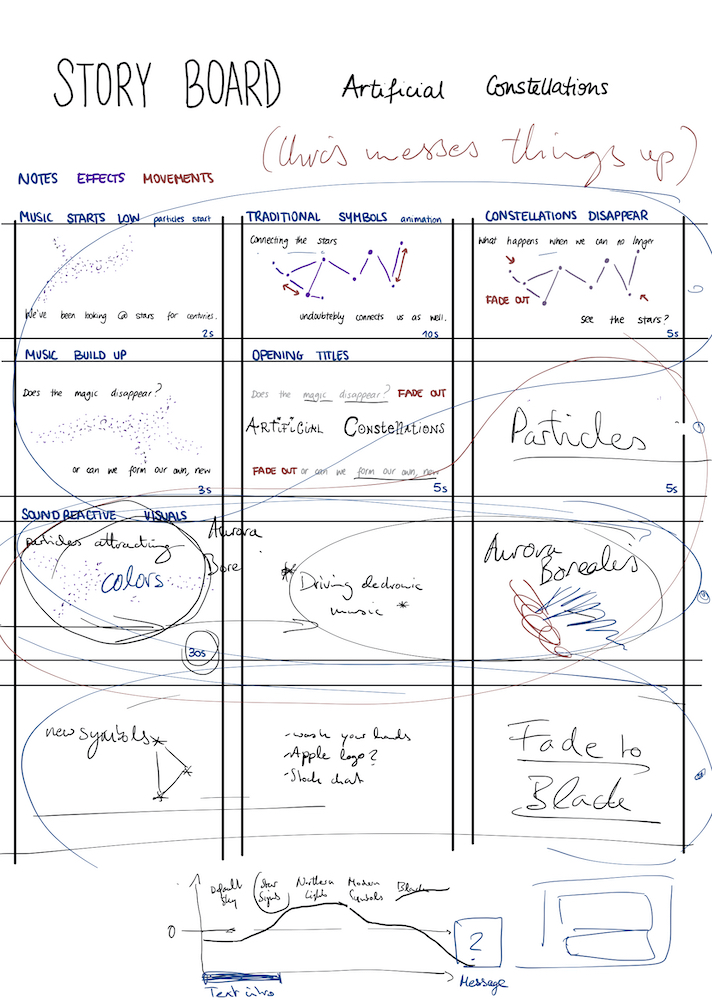 STORY BOARD Artificial Constellations
(Chris messes things up)
NOTES EFFECTS MOVEMENTS
MUSIC STARTS LOW particles start
We've been looking @ stars for centuries.
2s
TRADITIONAL SYMBOLS animation
Connecting the stars
undoubtebly connects us as well.
10s
CONSTELLATIONS DISAPPEAR
What happens when we can no longer
FADE OUT
see the stars?
5s
MUSIC BUILD UP
Does the magic disappear?
or can we form our own, new
3s
OPENING TITLES
Does the magic disappear? FADE OUT
ARTIFICIAL CONSTELLATIONS
FADE OUT or can we form our own, new
5s
Particles
5s
SOUND REACTIVE VISUALS
particles attracting
colors
30s
Aurora
Bore
* Driving electronic
music *
Aurora
Borealis
new symbols
-wash your hands
-Apple logo?
-Stock chat
Fade to
Black
Default
Sky
Star
Signs
Northern
Lights
Modern
Symbols
Black
0
?
Text intro
Message